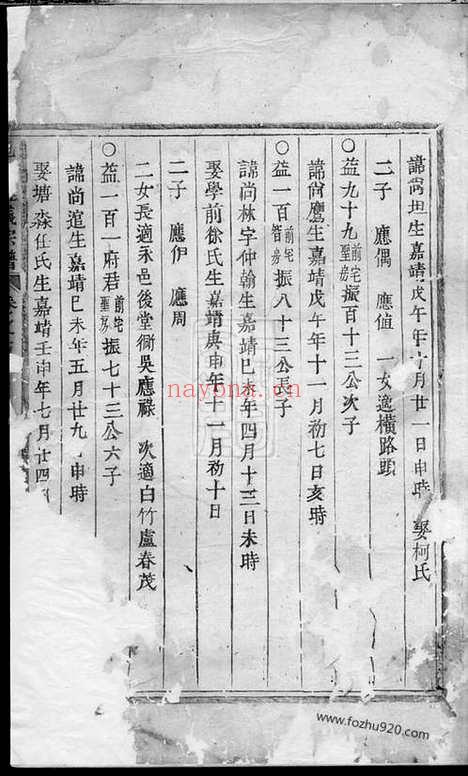 諱尚坦生嘉靖戊午年十月廿一日申時 娶柯氏
二子 應偶 應值 一女適橫路頭
○益九十九前宅聖房振百十三公次子
諱尚鷹生嘉靖戊午年十一月初七日亥時
○益一百前宅智房振八十三公長子
諱尚林字仲翰生嘉靖己未年四月十三日未時
娶學前徐氏生嘉靖庚申年十一月初十日
二子 應伊 應周
二女長適永邑後堂衕吳應祿 次適白竹盧春茂
○益一百一府君前宅聖房振七十三公六子
諱尚 生嘉靖己未年五月廿九 申時
娶塘 任氏生嘉靖壬申年七月廿四
宗譜
nayona.cn
www.fozhu920.com